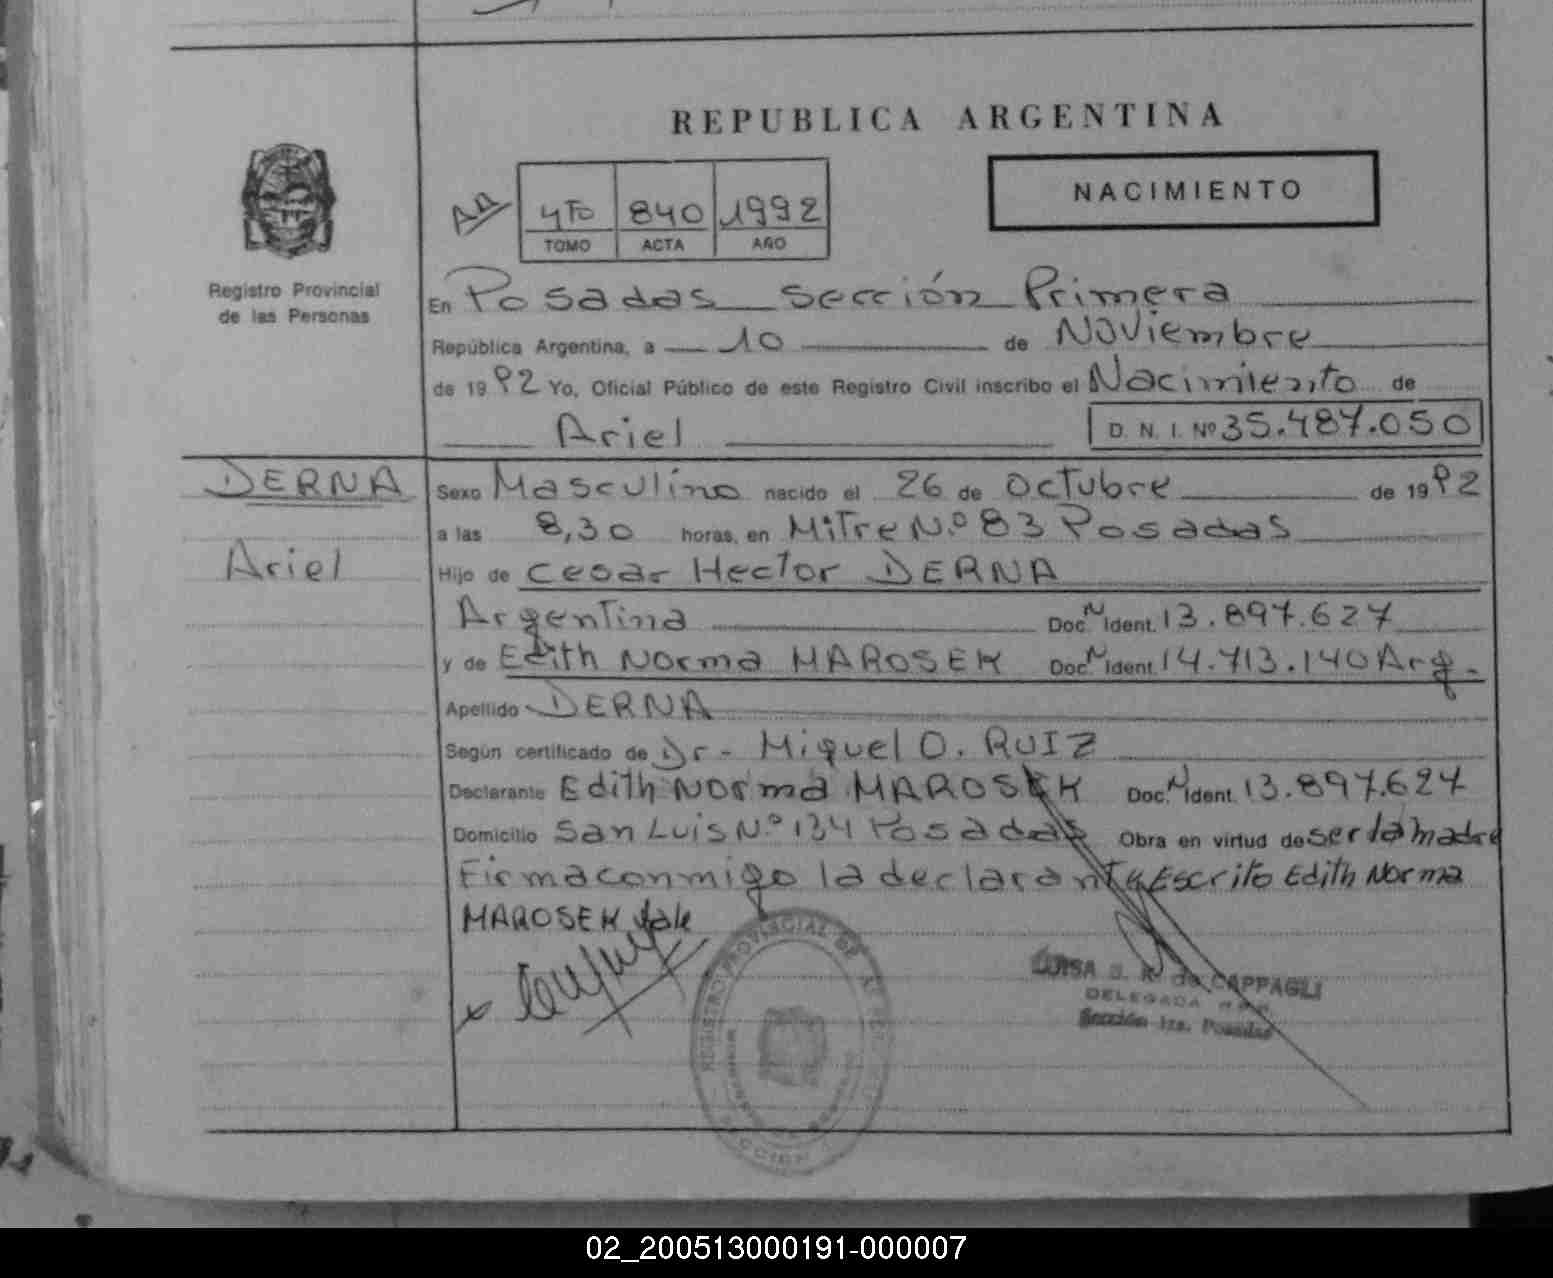 REPUBLICA ARGENTINA
NACIMIENTO
4TO 840 1992
TOMO ACTA AÑO
Registro Provincial
de las Personas
En Posadas Sección Primera
República Argentina, a 10 de Noviembre
de 1992 Yo, Oficial Público de este Registro Civil inscribo el Nacimiento de
Ariel D. N. I. Nº 35.487.050
DERNA
Ariel
Sexo Masculino nacido el 26 de Octubre de 1992
a las 8,30 horas, en Mitre N.º 83 Posadas
Hijo de Cesar Hector DERNA
Argentina Doc. N Ident. 13.897.627
y de Edith Norma MAROSEK Doc. N Ident. 14.713.140 Arg.
Apellido DERNA
Según certificado de Dr- Miguel O. RUIZ
Declarante Edith Norma MAROSEK Doc. N Ident. 13.897.627
Domicilio San Luis N.º 134 Posadas Obra en virtud de ser la madre
Firma conmigo la declarante Escrito Edith Norma
MAROSEK Vale
REGISTRO PROVINCIAL DE
LUISA S. R. de CAPPAGLI
DELEGADA
Sección 1ra. Posadas
02_200513000191-000007